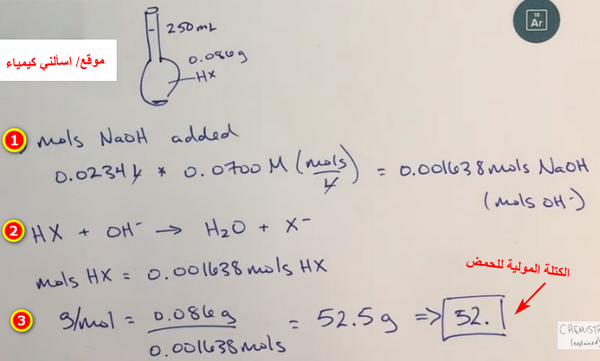 18
Ar
250mL
0.086g
HX
موقع/ اسألني كيمياء
1 mols NaOH added
0.0234 L * 0.0700 M (mols/L) = 0.001638 mols NaOH
(mols OH-)
2 HX + OH- → H2O + X-
mols HX = 0.001638 mols HX
الكتلة المولية للحمض
3 g/mol = 0.086g / 0.001638 mols = 52.5 g ⇒ 52.
(explained)